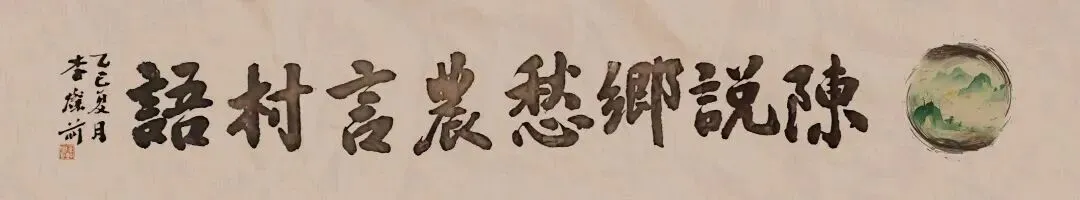 陳說鄉愁農言村語
乙巳夏月
李燦前